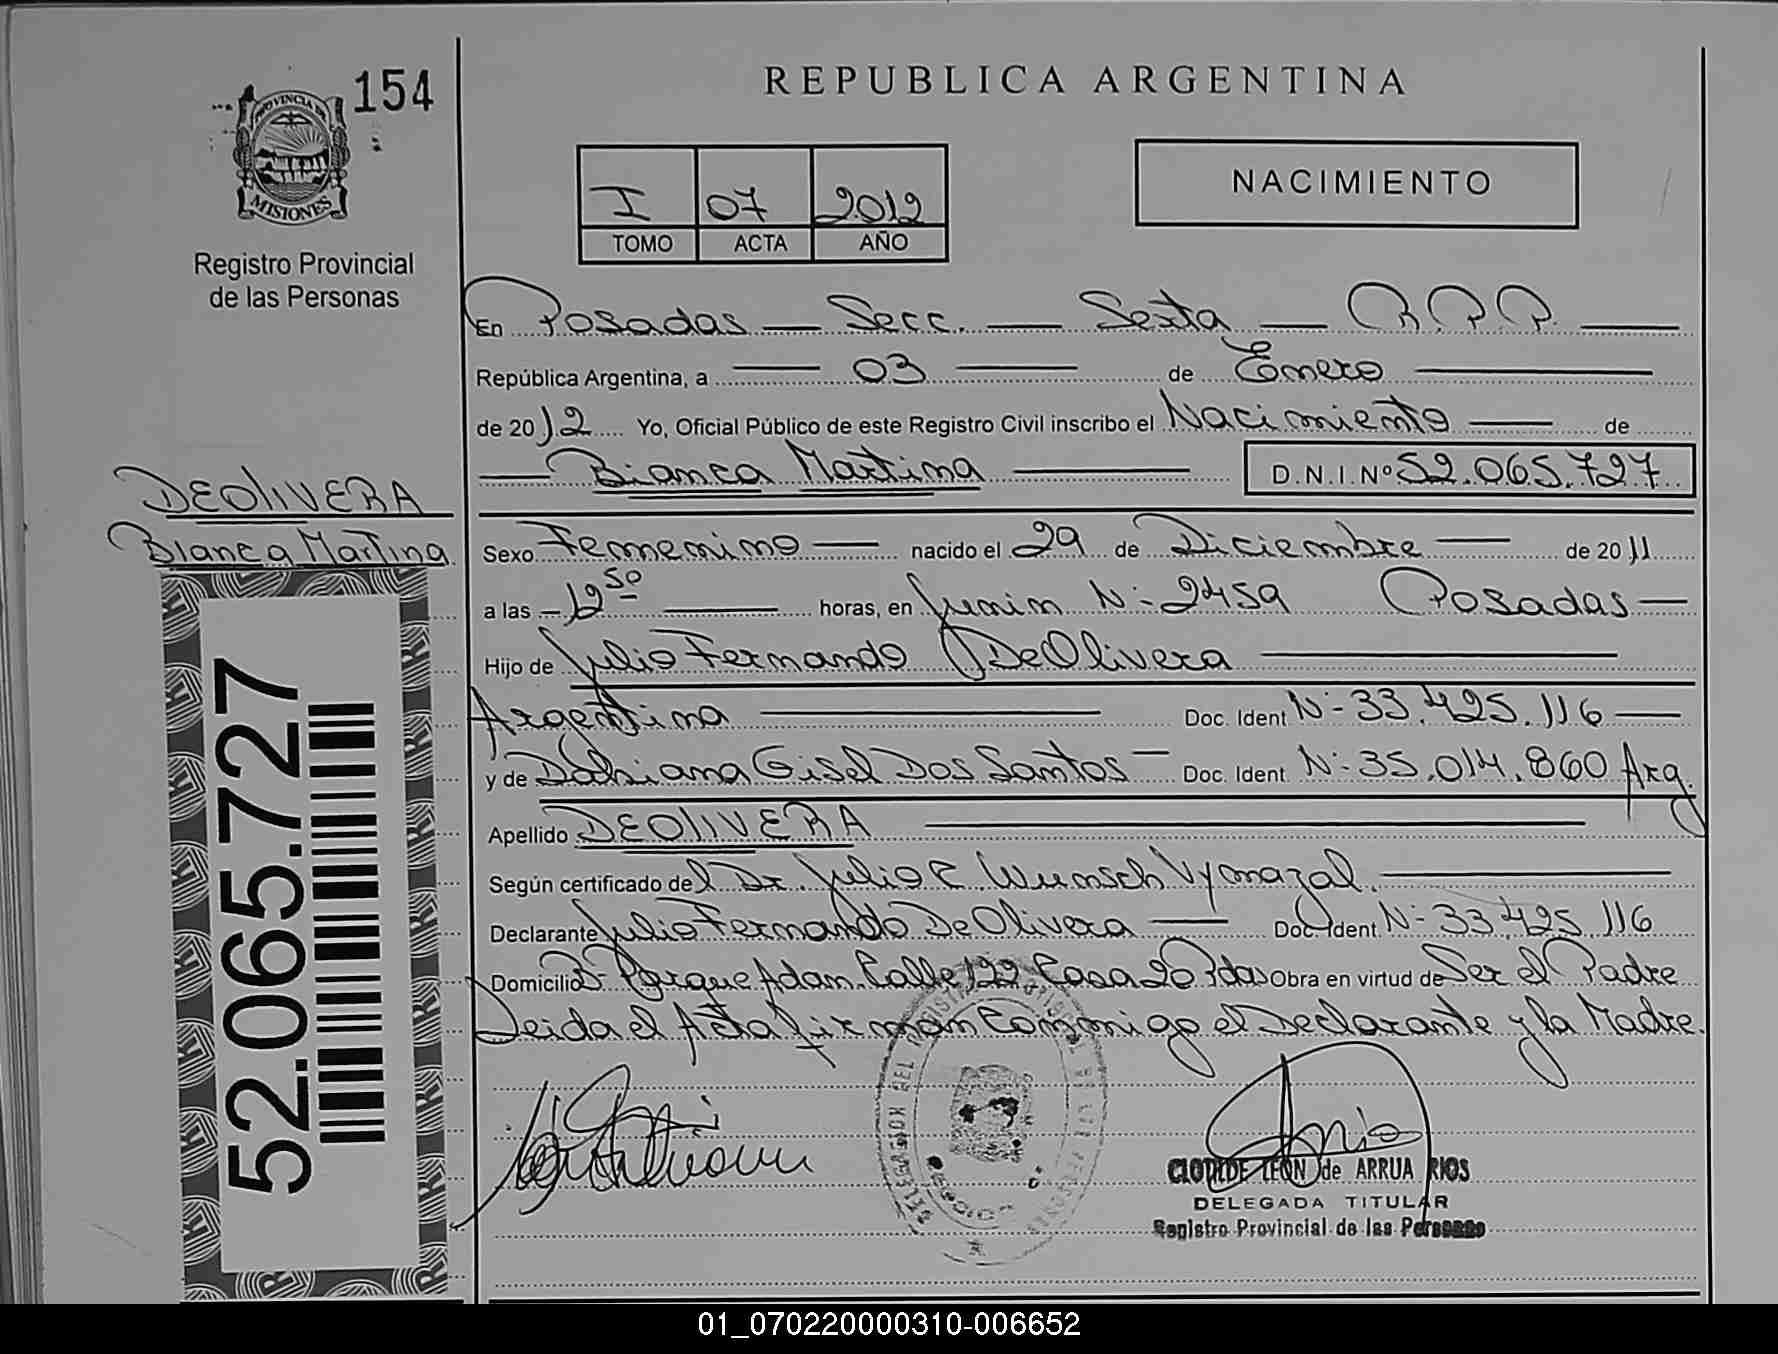 154
PROVINCIA DE
MISIONES
Registro Provincial
de las Personas
REPUBLICA ARGENTINA
I 07 2012
TOMO ACTA AÑO
NACIMIENTO
En Posadas — Secc. — Sexta — R.P.P. —
República Argentina, a — 03 — de Enero —
de 2012 Yo, Oficial Público de este Registro Civil inscribo el Nacimiento — de
— Bianca Martina — D.N.I.Nº 52.065.727
DEOLIVERA
Bianca Martina
Sexo Femenino — nacido el 29 de Diciembre — de 2011
a las — 12 50 — horas, en Junin Nº 2459 Posadas —
Hijo de Julio Fernando DeOlivera —
Argentina — Doc. Ident Nº 33.425.116 —
y de Gisel Dos Santos — Doc. Ident. Nº 35.014.860 Arg.
Apellido DEOLIVERA —
Según certificado del Dr. Julio C. Wunsch Vymazal. —
Declarante Julio Fernando DeOlivera — Doc. Ident. Nº 33.425.116
Domicilio Bº Parque Adam Calle 122 Casa 20 Pdas Obra en virtud de Ser el Padre
Leida el Acta firman Conmigo el Declarante y la Madre.
52.065.727
CLOTILDE LEON de ARRUA RIOS
DELEGADA TITULAR
Registro Provincial de las Personas
01_070220000310-006652